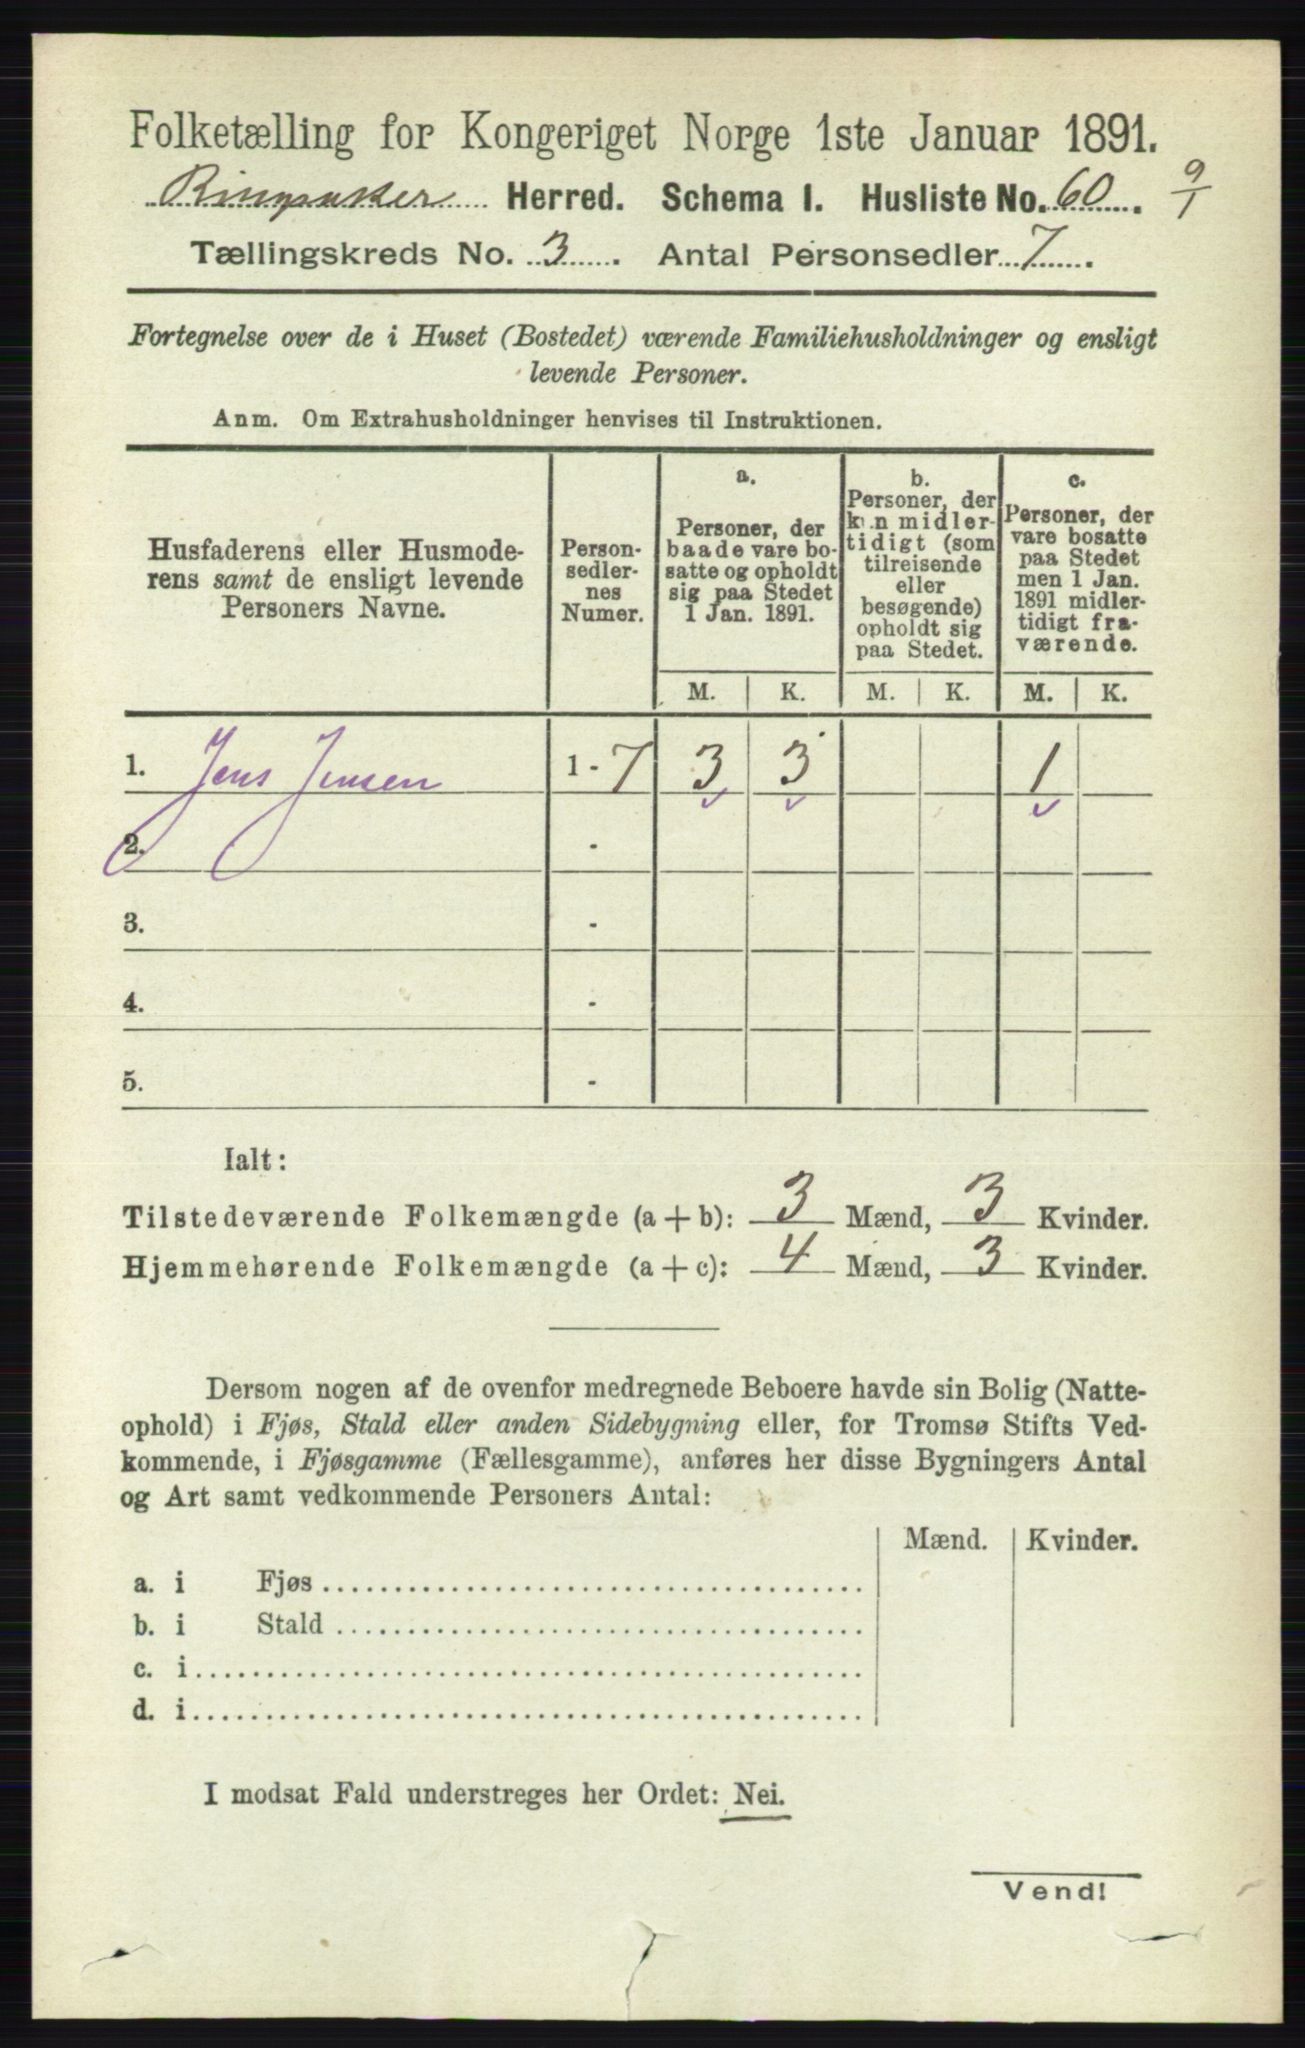 Folketælling for Kongeriget Norge 1ste Januar 1891.
Ringsaker Herred. Schema I. Husliste No. 60. 9/1
Tællingskreds No. 3. Antal Personsedler 7.
Fortegnelse over de i Huset (Bostedet) værende Familiehusholdninger og ensligt
levende Personer.
Anm. Om Extrahusholdninger henvises til Instruktionen.
Husfaderens eller Husmode-
rens samt de ensligt levende
Personers Navne.
Person-
sedler-
nes
Numer.
a.
Personer, der
baade vare bo-
satte og opholdt
sig paa Stedet
1 Jan. 1891.
b.
Personer, der
kun midler-
tidigt (som
tilreisende
eller
besøgende)
opholdt sig
paa Stedet.
c.
Personer, der
vare bosatte
paa Stedet
men 1 Jan.
1891 midler-
tidigt fra-
værende.
M. K. M. K. M. K.
1. Jens Jensen 1 - 7 3 3 1
2. -
3. -
4. -
5. -
Ialt:
Tilstedeværende Folkemængde (a + b): 3 Mænd, 3 Kvinder.
Hjemmehørende Folkemængde (a + c): 4 Mænd, 3 Kvinder.
Dersom nogen af de ovenfor medregnede Beboere havde sin Bolig (Natte-
ophold) i Fjøs, Stald eller anden Sidebygning eller, for Tromsø Stifts Ved-
kommende, i Fjøsgamme (Fællesgamme), anføres her disse Bygningers Antal
og Art samt vedkommende Personers Antal:
Mænd. Kvinder.
a. i Fjøs
b. i Stald
c. i
d. i
I modsat Fald understreges her Ordet: Nei.
Vend!